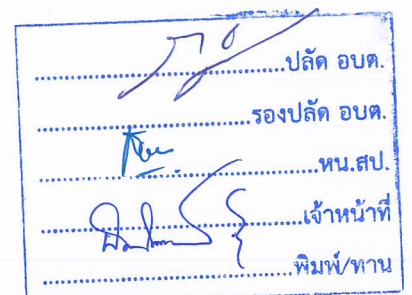 ....................ปลัด อบต.
....................รองปลัด อบต.
....................หน.สป.
....................เจ้าหน้าที่
....................พิมพ์/ทาน